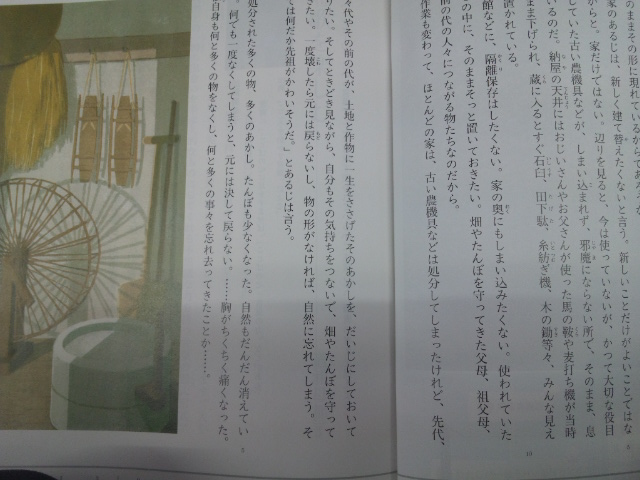 のままその形に現れ
家のあるじは、新しく建て替えたくないと言う。新しいことだけがよいことではな
からと。家だけではない。辺りを見ると、今は使っていないが、かつて大切な役目
していた古い農機具などが、しまい込まれず、邪魔にならない所で、そのまま、息
いるのだ。納屋の天井にはおじいさんやお父さんが使った馬の鞍や麦打ち機が当時
まま下げられ、蔵に入るとすぐ石臼、田下駄、糸紡ぎ機、木の鋤等々、みんな見え
置かれている。
館などに、隔離保存はしたくない。家の奥にもしまい込みたくない。使われていた
の中に、そのままそっと置いておきたい。畑やたんぼを守ってきた父母、祖父母、
前の代の人々につながる物たちなのだから。
作業も変わって、ほとんどの家は、古い農機具などは処分してしまったけれど、先代、
10
々代やその前の代が、土地と作物に一生をささげたそのあかしを、だいじにしておいて
りたい。そしてときどき見ながら、自分もその気持ちをつないで、畑やたんぼを守って
きたい。一度壊したら元には戻らないし、物の形がなければ、自然に忘れてしまう。そ
では何だか先祖がかわいそうだ。』とあるじは言う。
処分された多くの物、多くのあかし。たんぼも少なくなった。自然もだんだん消えてい
。何でも一度なくしてしまうと、元には決して戻らない。……胸がちくちく痛くなった。
自身も何と多くの物をなくし、何と多くの事々を忘れ去ってきたことか……。
5